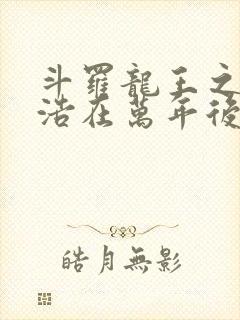 斗羅龍王之
浩在萬年後
皓月無影